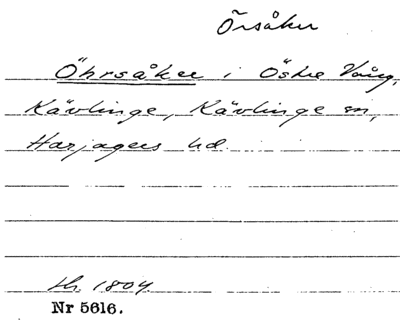 Örsåker
Öhrsåker i Östre Vång,
Kävlinge, Kävlinge sn,
Harjagers hd.
1804
Nr 5616.